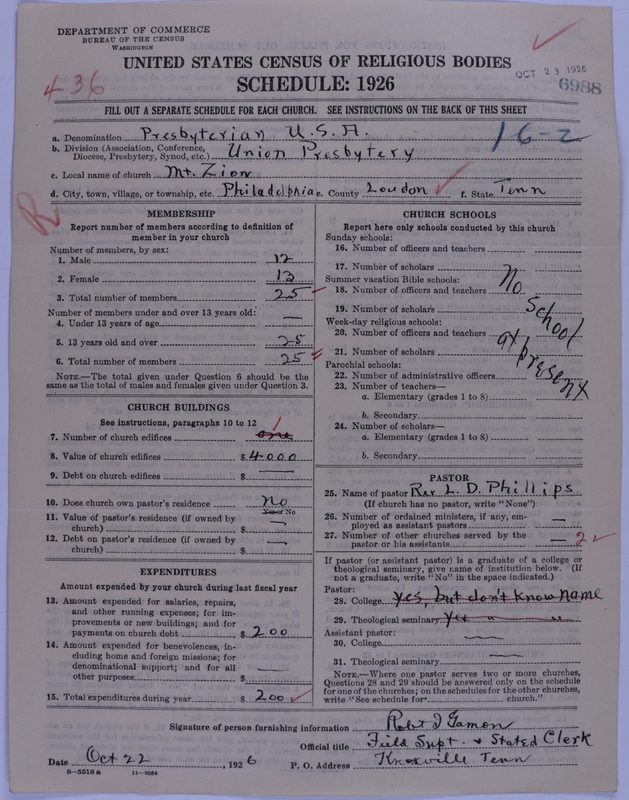 DEPARTMENT OF COMMERCE
BUREAU OF THE CENSUS
WASHINGTON
UNITED STATES CENSUS OF RELIGIOUS BODIES
OCT 23 1926
436
SCHEDULE: 1926
6988
FILL OUT A SEPARATE SCHEDULE FOR EACH CHURCH. SEE INSTRUCTIONS ON THE BACK OF THIS SHEET
a. Denomination Presbyterian U.S.A.
16-2
b. Division (Association, Conference, Diocese, Presbytery, Synod, etc.) Union Presbytery
c. Local name of church Mt. Zion
d. City, town, village, or township, etc. Philadelphia e. County Loudon f. State Tenn
R
MEMBERSHIP
Report number of members according to definition of
member in your church
Number of members, by sex:
1. Male 12
2. Female 13
3. Total number of members 25
Number of members under and over 13 years old:
4. Under 13 years of age —
5. 13 years old and over 25
6. Total number of members 25
NOTE.—The total given under Question 6 should be the
same as the total of males and females given under Question 3.
CHURCH BUILDINGS
See instructions, paragraphs 10 to 12
7. Number of church edifices one 1
8. Value of church edifices $4000
9. Debt on church edifices $ —
10. Does church own pastor's residence No
Yes or No
11. Value of pastor's residence (if owned by
church) $ —
12. Debt on pastor's residence (if owned by
church) $ —
EXPENDITURES
Amount expended by your church during last fiscal year
13. Amount expended for salaries, repairs,
and other running expenses; for im-
provements or new buildings; and for
payments on church debt $ 200
14. Amount expended for benevolences, in-
cluding home and foreign missions; for
denominational support; and for all
other purposes $ —
15. Total expenditures during year $ 200
CHURCH SCHOOLS
Report here only schools conducted by this church
Sunday schools:
16. Number of officers and teachers
17. Number of scholars
Summer vacation Bible schools:
18. Number of officers and teachers
19. Number of scholars
Week-day religious schools:
20. Number of officers and teachers
21. Number of scholars
Parochial schools:
22. Number of administrative officers
23. Number of teachers—
a. Elementary (grades 1 to 8)
b. Secondary
24. Number of scholars—
a. Elementary (grades 1 to 8)
b. Secondary
No School at present
PASTOR
25. Name of pastor Rev L. D. Phillips
(If church has no pastor, write "None")
26. Number of ordained ministers, if any, em-
ployed as assistant pastors —
27. Number of other churches served by the
pastor or his assistants — 2
If pastor (or assistant pastor) is a graduate of a college or
theological seminary, give name of institution below. (If
not a graduate, write "No" in the space indicated.)
Pastor:
28. College yes, but don't know name
29. Theological seminary yes — " "
Assistant pastor:
30. College —
31. Theological seminary —
NOTE.—Where one pastor serves two or more churches,
Questions 28 and 29 should be answered only on the schedule
for one of the churches; on the schedules for the other churches,
write "See schedule for church."
Signature of person furnishing information Robt I Gamon
Official title Field Supt. & Stated Clerk
Date Oct 22, 1926 P. O. Address Knoxville Tenn
8—5518 a 11—9034